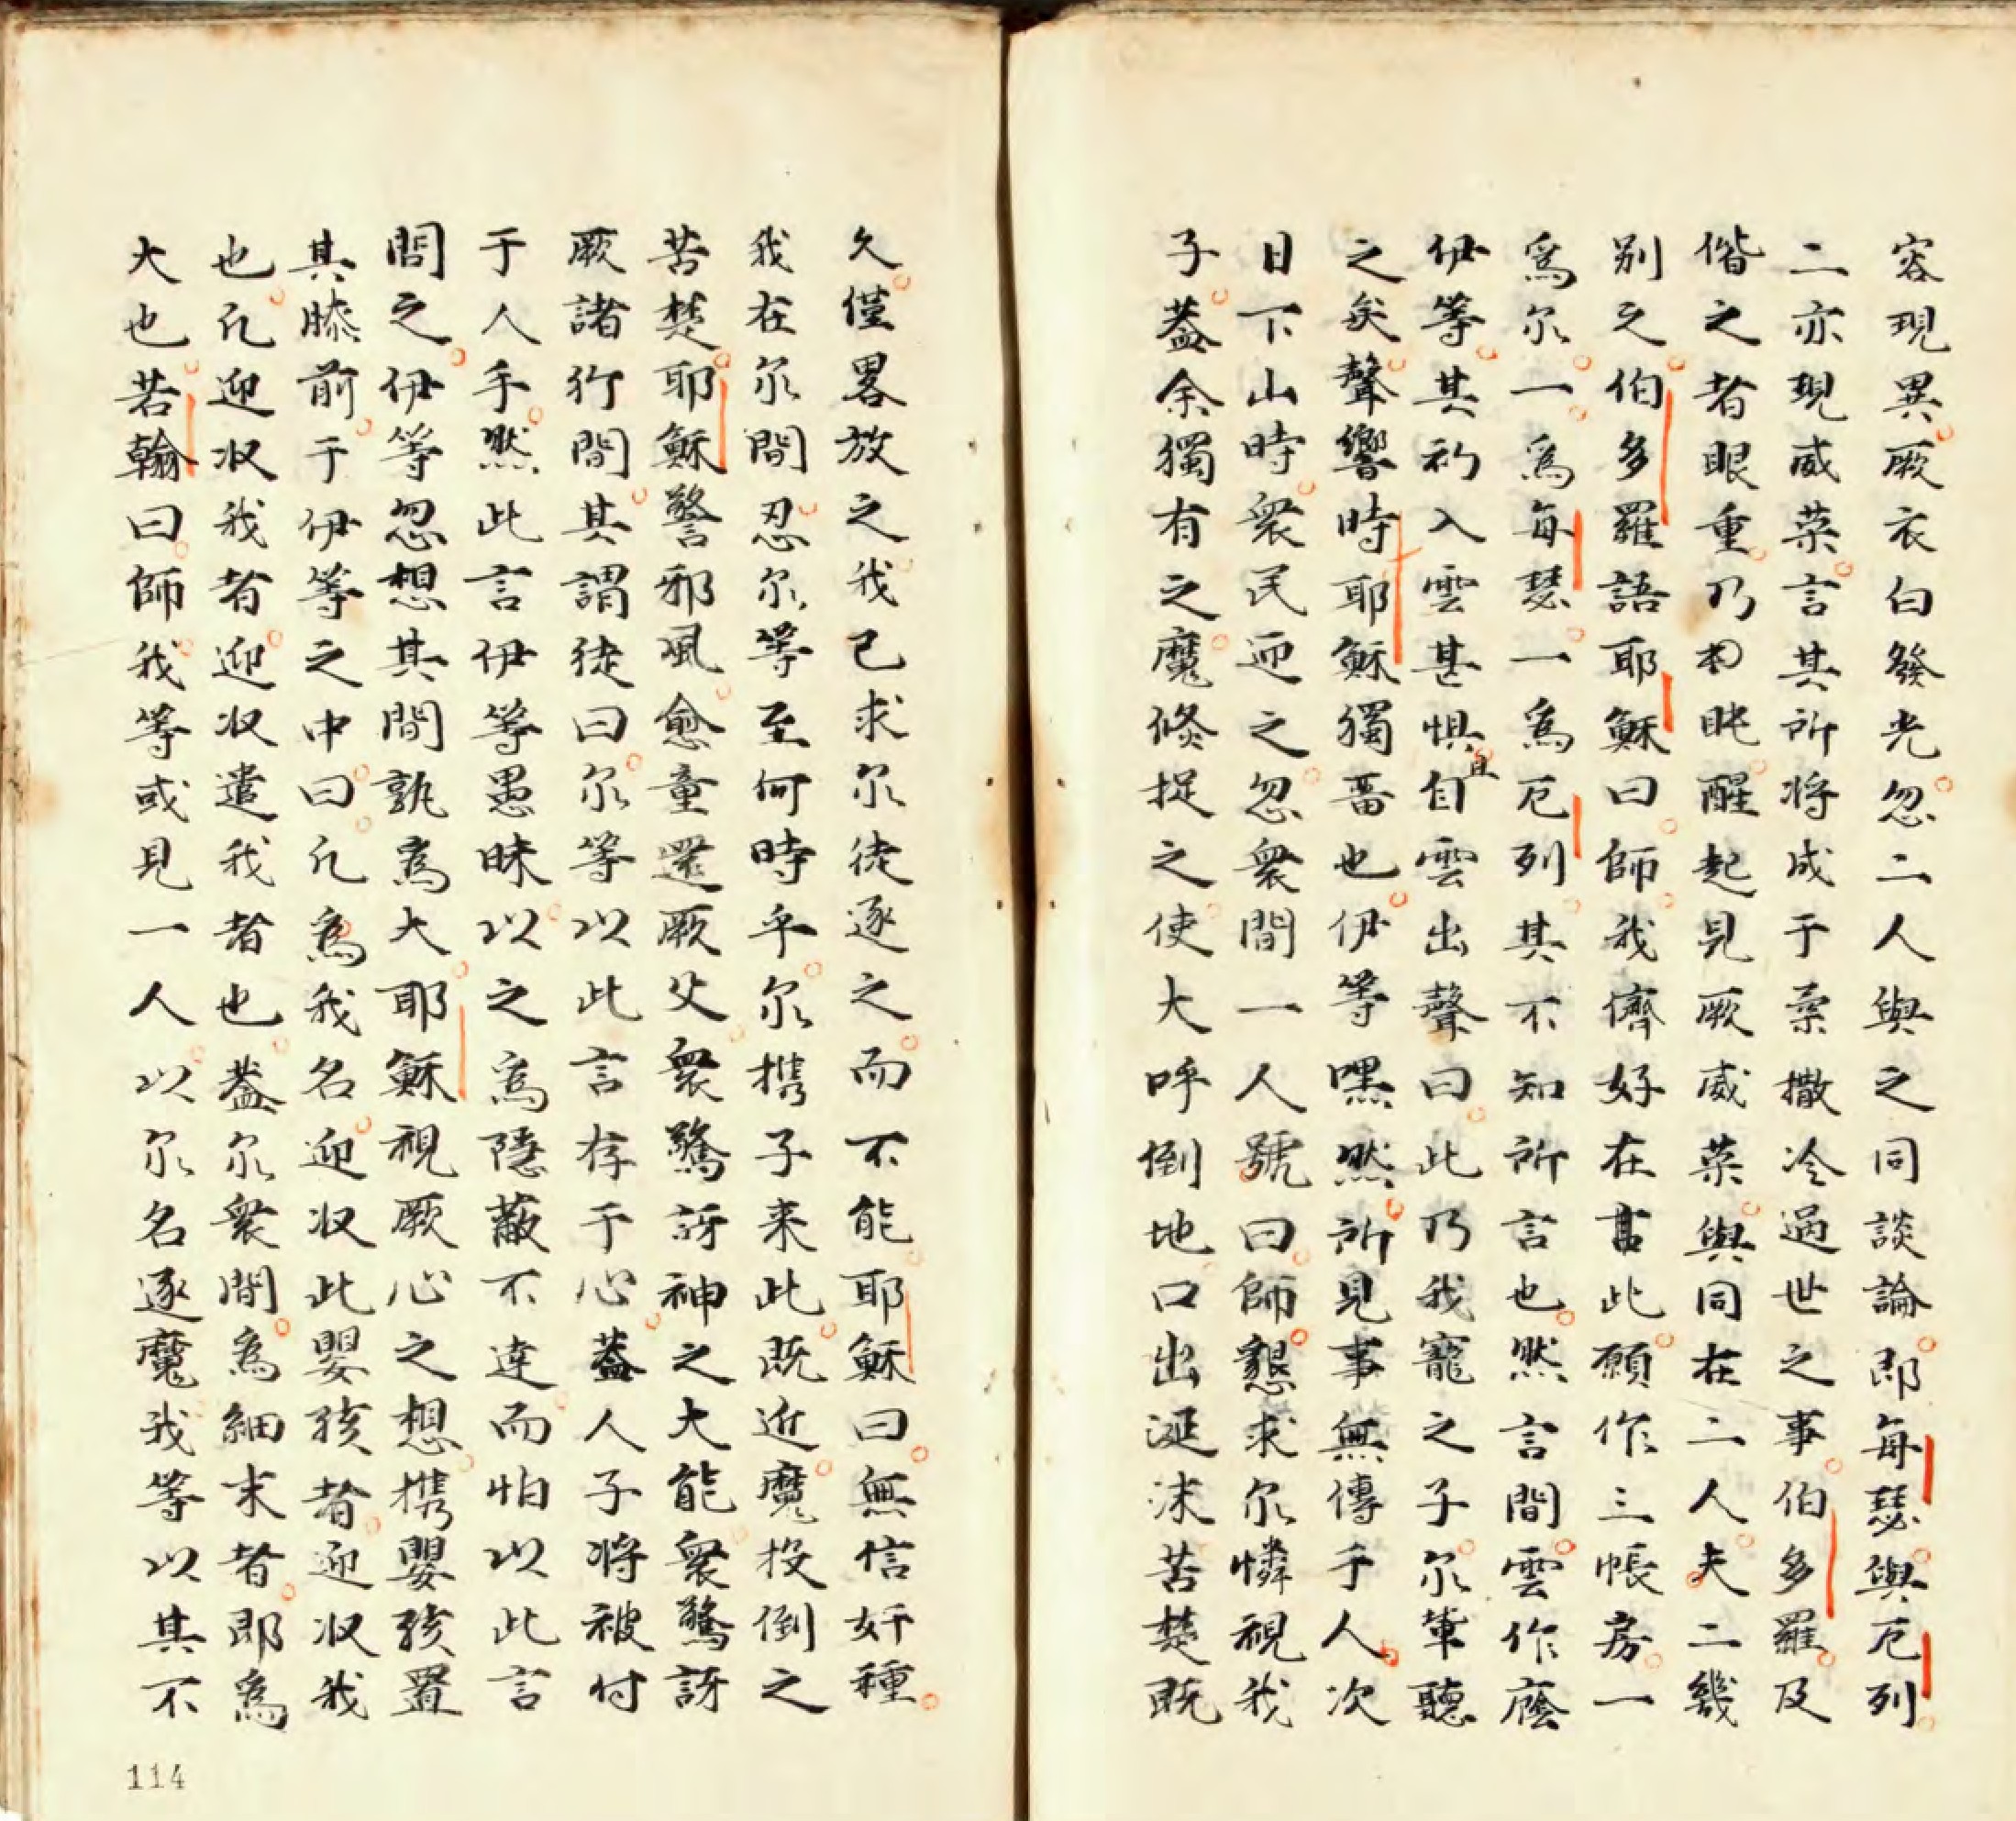 容現異厥衣白發光忽二人與之同談論即每瑟與厄列
二亦現威荣言其所将成于柔撒冷過世之事伯多羅及
偕之者眼重乃困眈醒起見厥威荣與同在二人夫二幾
别之伯多羅語耶穌曰師我儕好在此願作三帳房一
爲尔一爲每瑟一爲厄列其不知所言也然言間雲作廕
伊等其初入雲甚惧且自雲出聲曰此乃我寵之子尔軰聽
之矣聲響時耶穌獨畱也伊等嘿然所見事無傳于人次
日下山時衆民迊之忽衆間一人號曰師懇求尔憐視我
子葢余獨有之魔倐捉之使大呼倒地口出涎沫苦楚既
久僅畧放之我已求尔徒逐之而不能耶穌曰無信奸種
我在尔間忍尔等至何時乎尔携子来此既近魔投倒之
苦楚耶穌警邪風愈童還厥父衆驚訝神之大能衆驚訝
厥諸行間其謂徒曰尔等以此言存于心葢人子将被付
于人手然此言伊等愚昧以之爲隱蔽不達而怕以此言
問之伊等忽想其間孰爲大耶穌視厥心之想携嬰孩置
其膝前于伊等之中曰凢爲我名迎収此嬰孩者迎収我
也凢迎収我者迎収遣我者也葢尔衆間爲細末者即爲
大也若翰曰師我等或見一人以尔名逐魔我等以其不
114